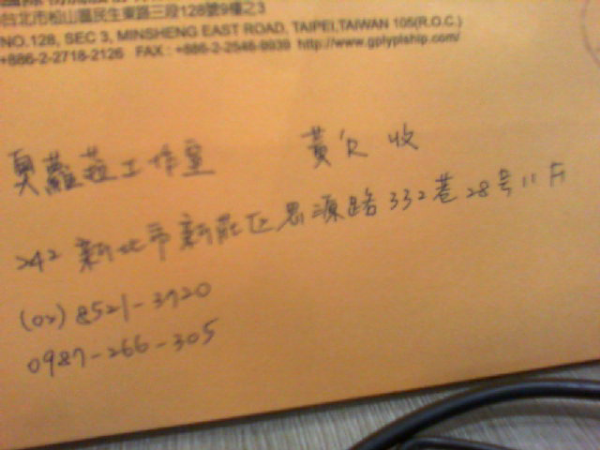 台北市松山區民生東路三段128號9樓之3
NO.128, SEC 3, MINSHENG EAST ROAD, TAIPEI,TAIWAN 105(R.O.C.)
+886-2-2718-2126 FAX : +886-2-2546-9939 http://www.gplyplship.com/
奧蘿菈工作室 黃 收
242 新北市新莊区思源路332巷28号11F
(02) 8521-3920
0987-266-305